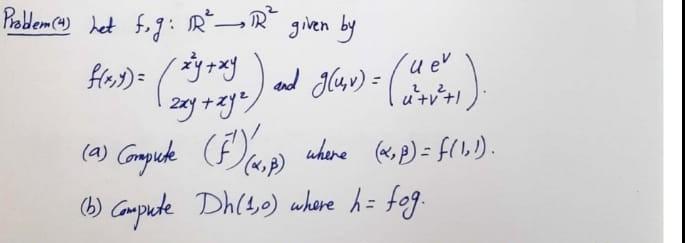 Problem (4) Let f,g: ℝ² → ℝ² given by
f(x,y) = ( x²y + xy ; 2xy + xy² ) and g(u,v) = ( u eᵛ ; u² + v² + 1 ).
(a) Compute (f⁻¹)'(α,β) where (α,β) = f(1,1).
(b) Compute Dh(1,0) where h = fog.